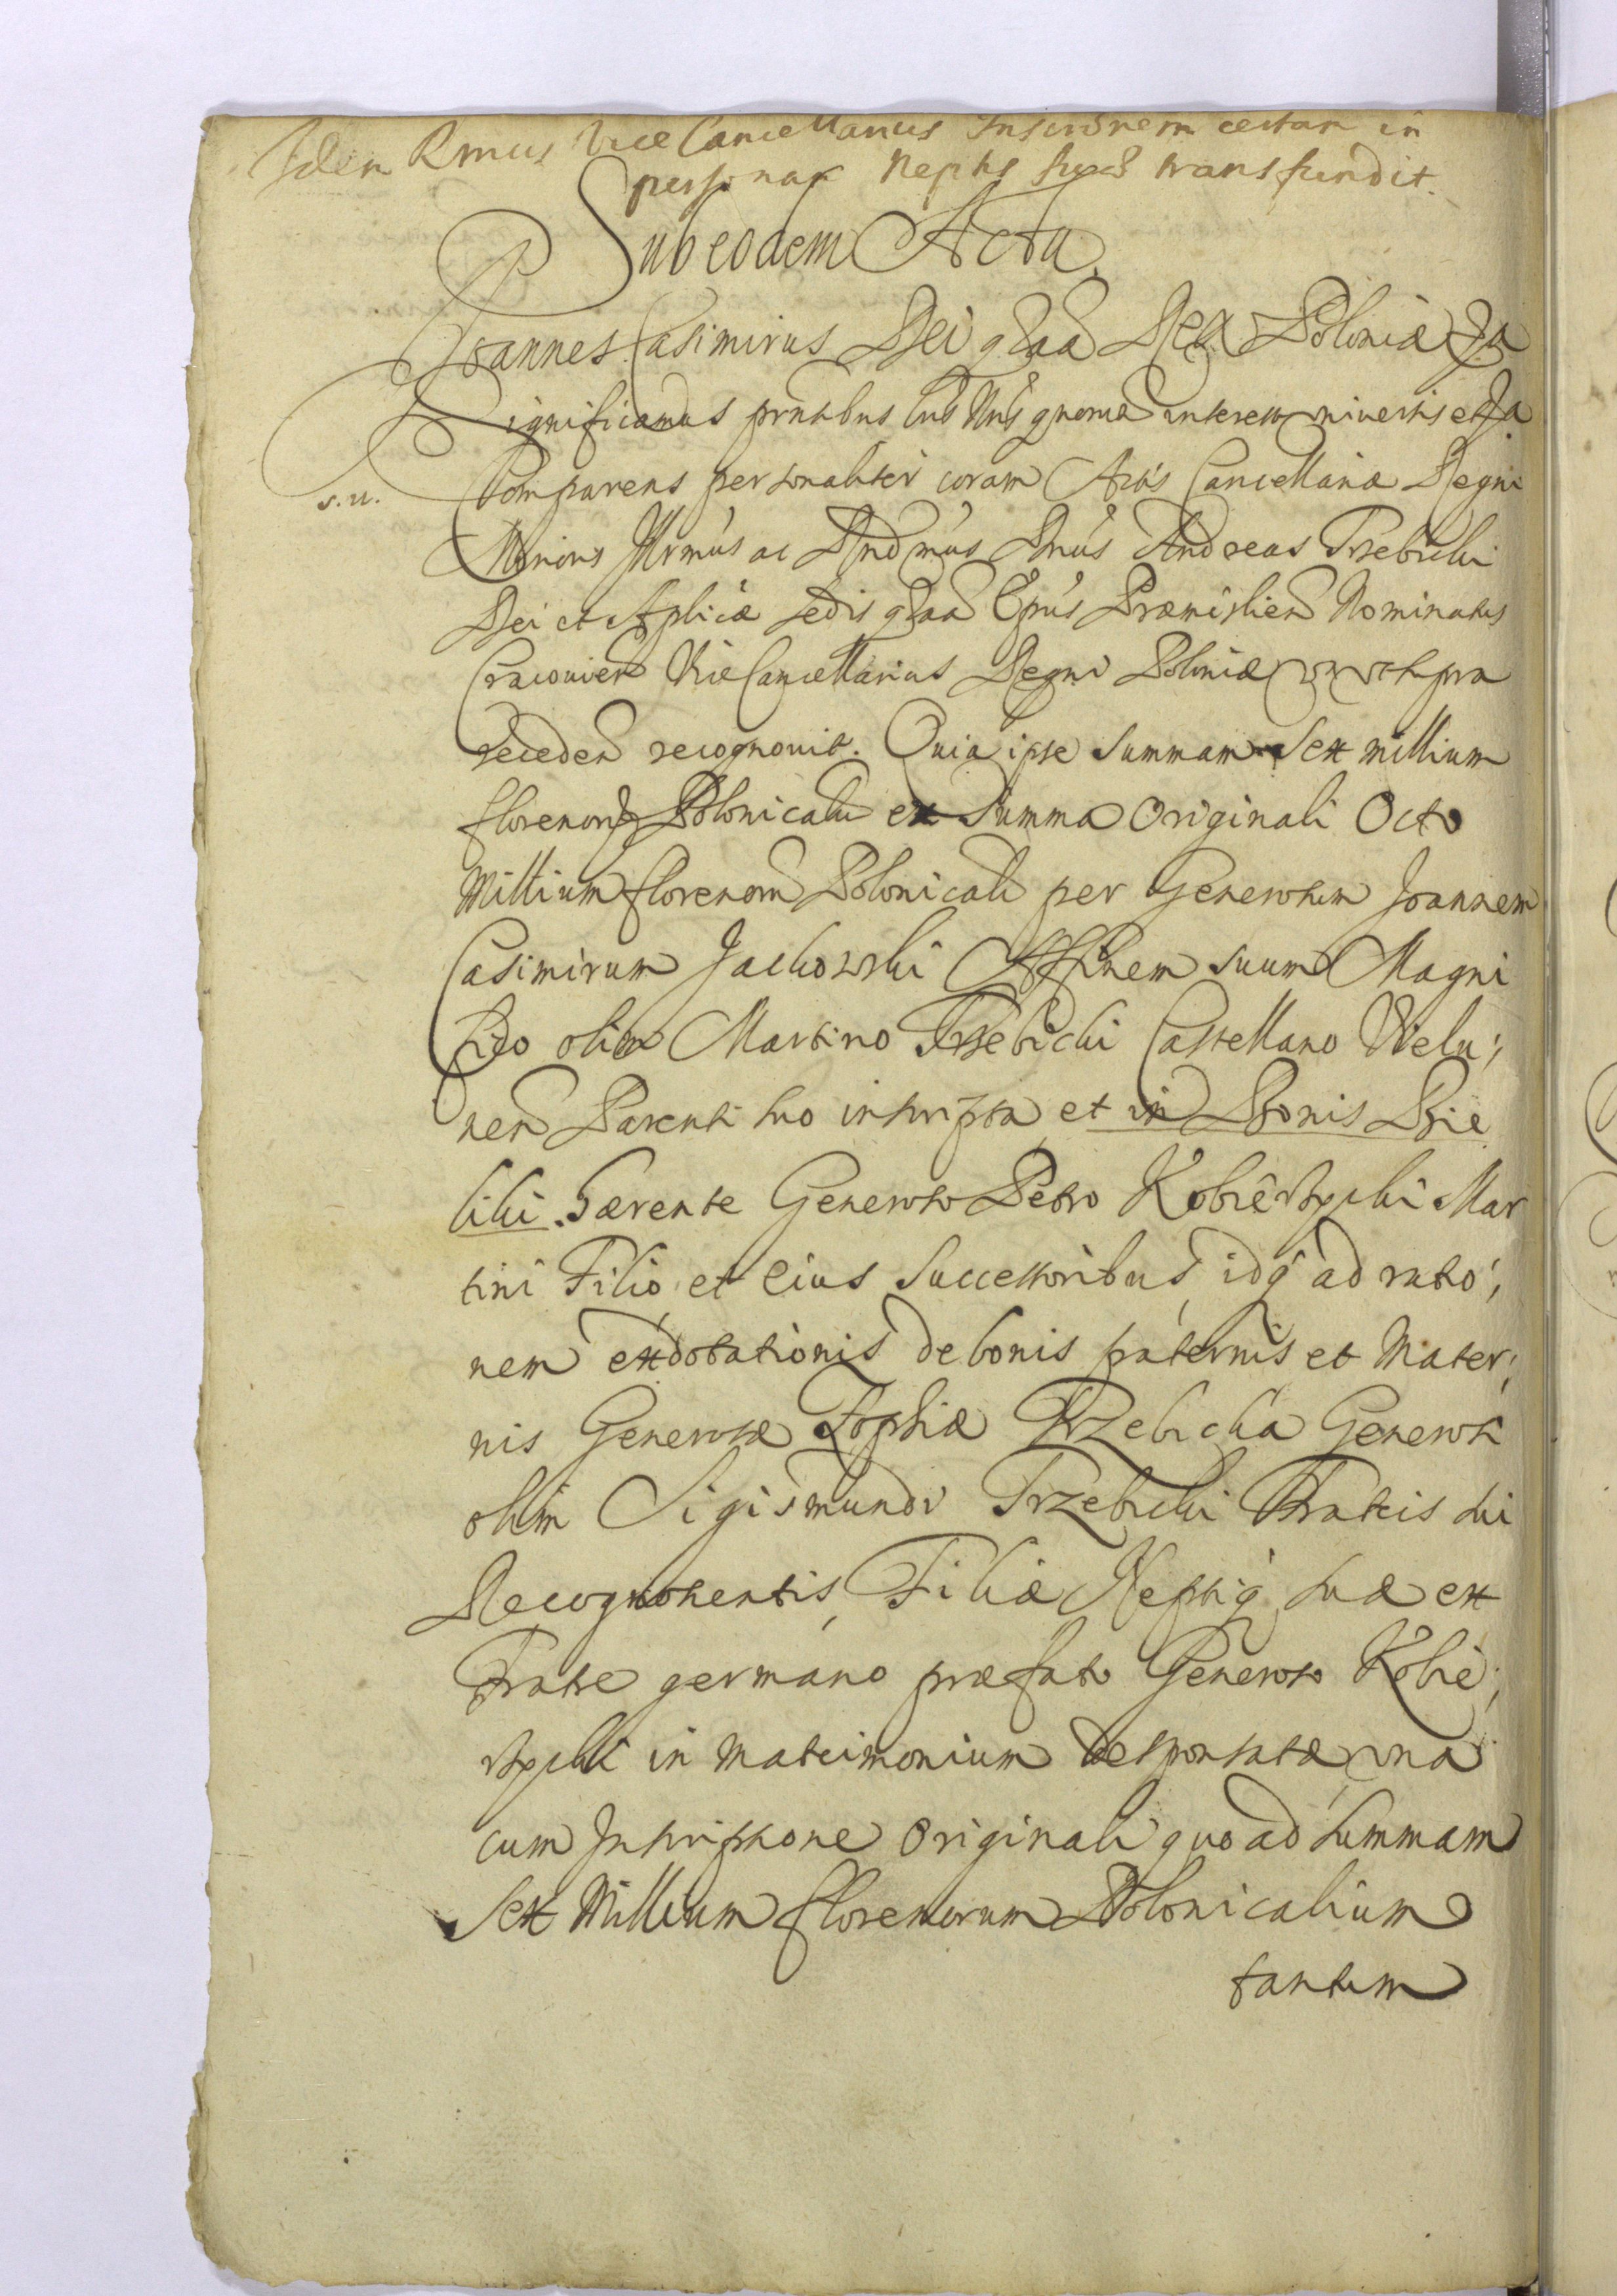 Idem Rmus Vice Cancellarius Inscrõnem certam in
personam Neptis suæ transfundit.
Sub eodem Actu.
Joannes Casimirus Dei grãa Rex Poloniæ &a
Significamus prntibus Lris Nris quorum interest universis et &a
s. n.
Comparens personaliter coram Actis Cancellariæ Regni
Minoris Illrmus ac Rndmus Dnus Andreas Trzebicki
Dei et Aplicæ sedis grãa Epus Præmislien Nominatus
Cracovien Vice Cancellarius Regni Poloniæ
receden recognovit. Quia ipse Summam Sex millium
florenorum Polonicaliũ ex Summa Originali Octo
Millium florenorũ Polonicaliũ per Generosum Joannem
Casimirum Jackowski Affinem suum Magni
fico olim Martino Trzebicki Castellano Wielu;
nen Parenti suo inscripta et in Bonis Bie
liki hærente Generoso Petro Kobierzycki Mar
tini Filio et eius Successoribus, idq ad ratio;
nem exdotationis de bonis paternis et Mater;
nis Generosæ Zophiæ Trzebicka Generosi
olim Sigismundi Trzebicki Fratris sui
Recognoscentis, Filiæ Neptiq suæ ex
Fratre germano præfato Generoso Kobie;
rzycki in matrimonium desponsatæ una
cum Inscriptione Originali quo ad Summam
Sex Millium florenorum Polonicalium
tantum